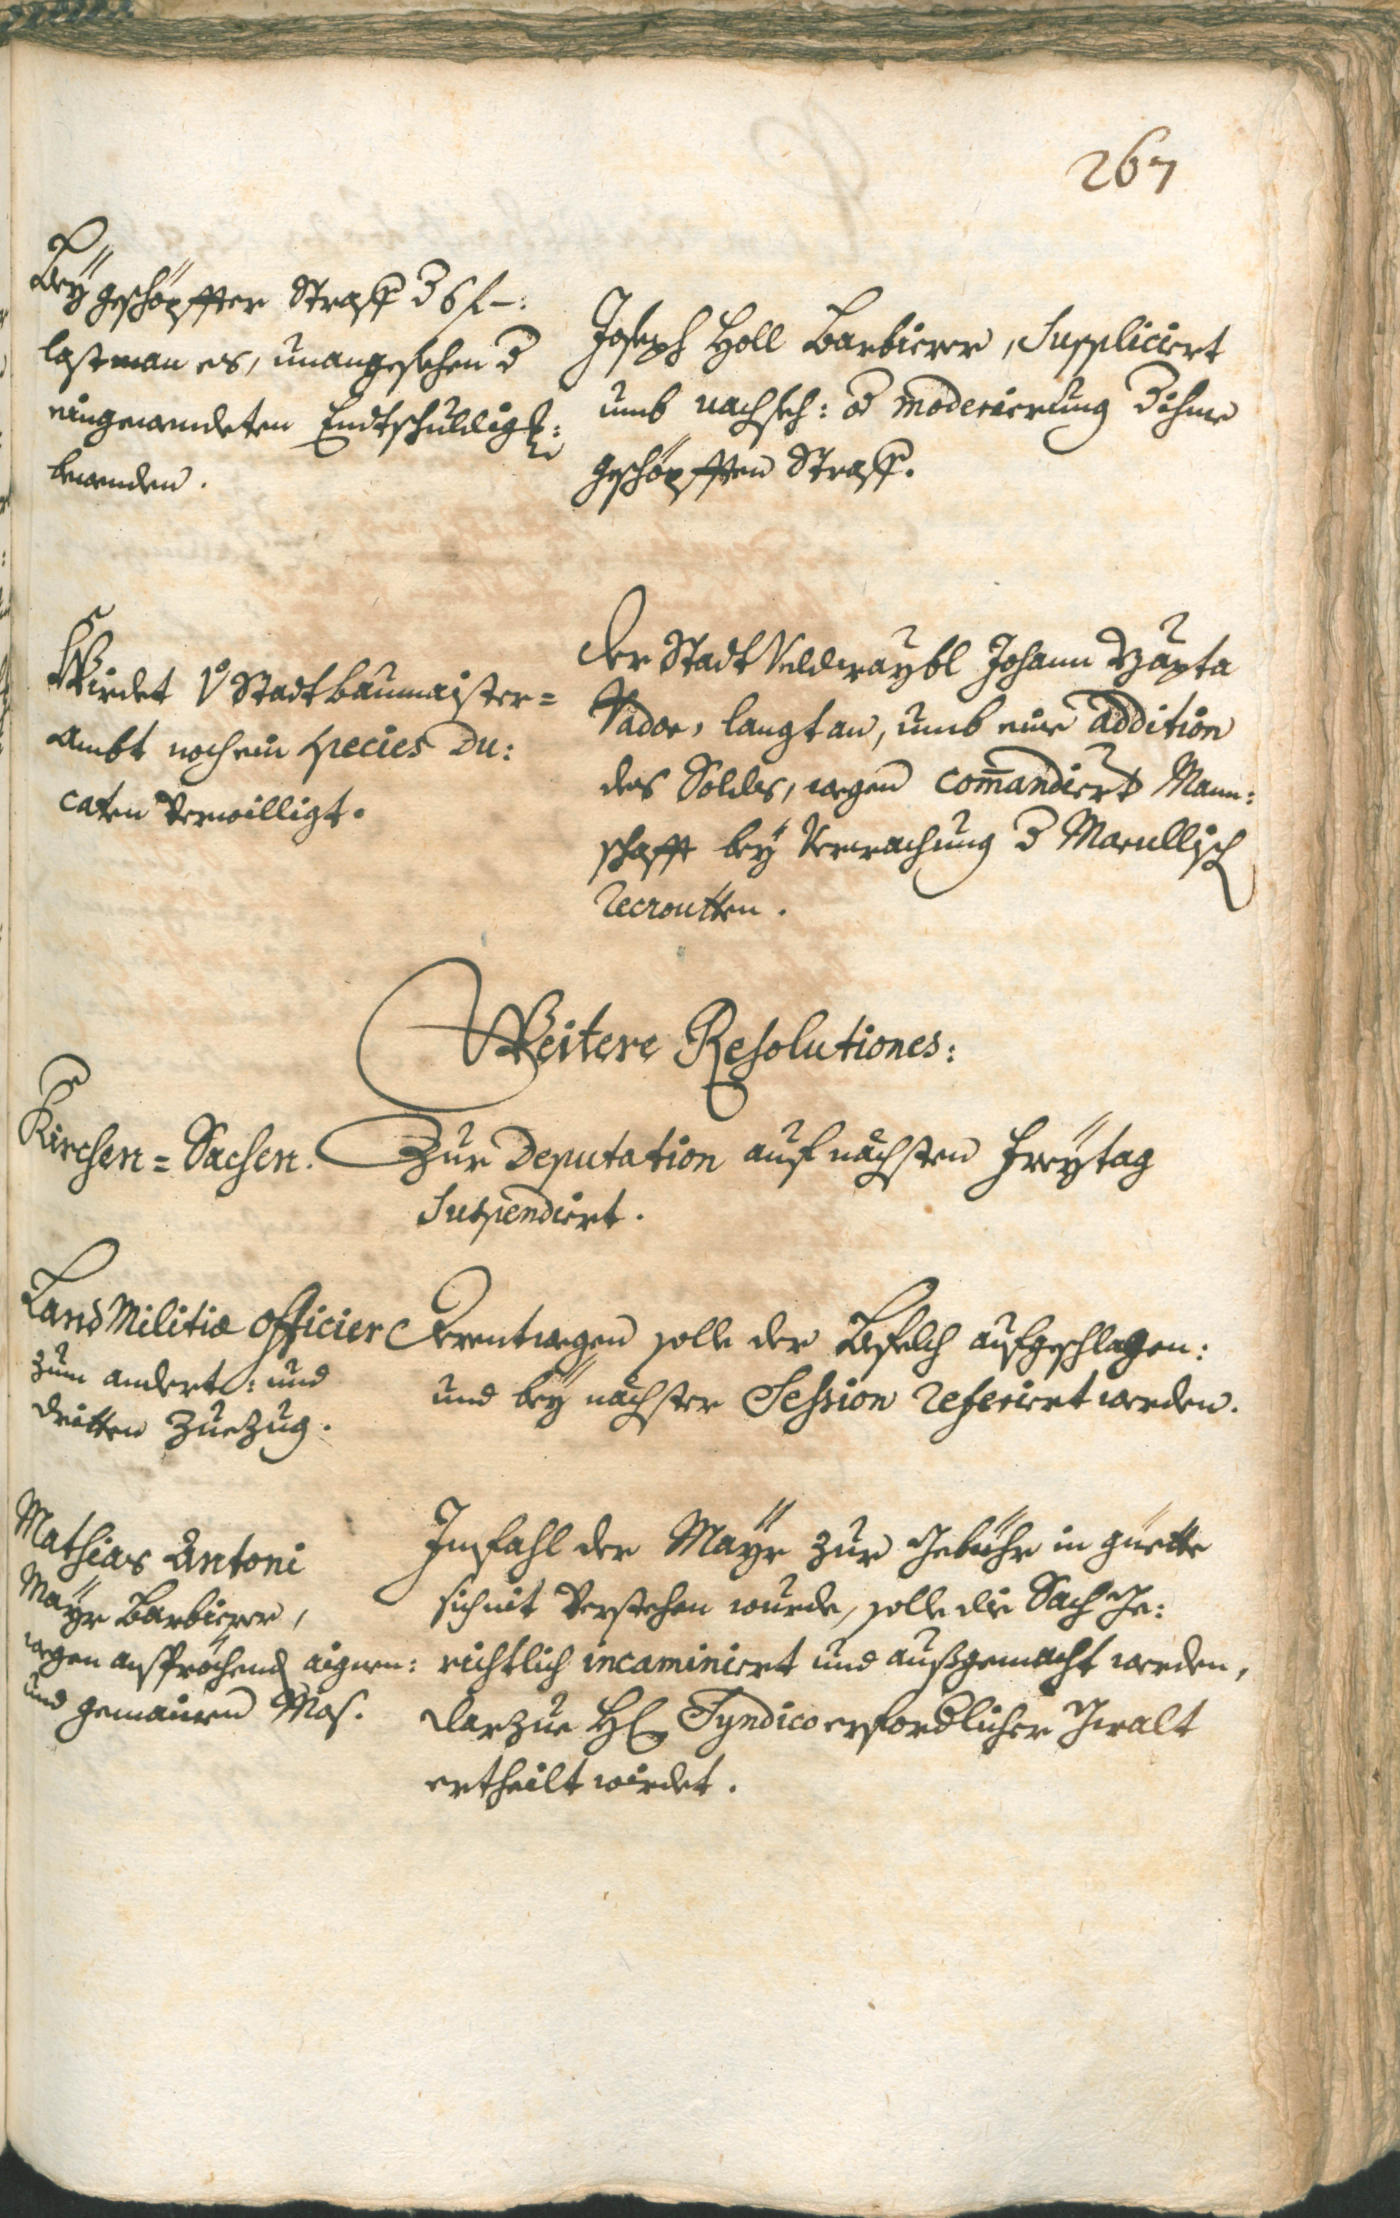 267
Beÿ geschöpffter Straff d 6 f –:
last man es, unangesehen d
eingewendeten Endtschuldig:
bewenden.
Joseph Holl Barbierer, Suppliciert
umb nachseh: od moderierung d ihme
geschöpfften Straff.
Wirdet v Stadtbaumaister=
Ambt noch ein species Du:
caten verwilligt.
Der Stadt Veldwaybl Johann Bapta
Vador, langt an, umb eine addition
des Solds, wegen com̄andiert Mann:
schafft beÿ Verwachung d Marullisch
recroutten.
Weitere Resolutiones:
Kirchen=Sachen.
Zur Deputation auf nächsten Freÿtag
suspendiert.
Land Militiæ officier
zum andert: und
dritten Zuezug.
Derentwegen solle der Befelch aufgeschlagen:
und beÿ nächster Session referiert werden.
Mathias Antoni
Maÿr Barbierer,
wegen ansprächend aignen:
und gemainen Mos.
Im fahl der Maÿr zur Gebühr in güette
sich nit verstehen wurde, solle die Sach Ge:
richtlich incaminiert und außgemacht werden,
darzue H Syndico erfordlicher Gwalt
ertheilt wirdet.